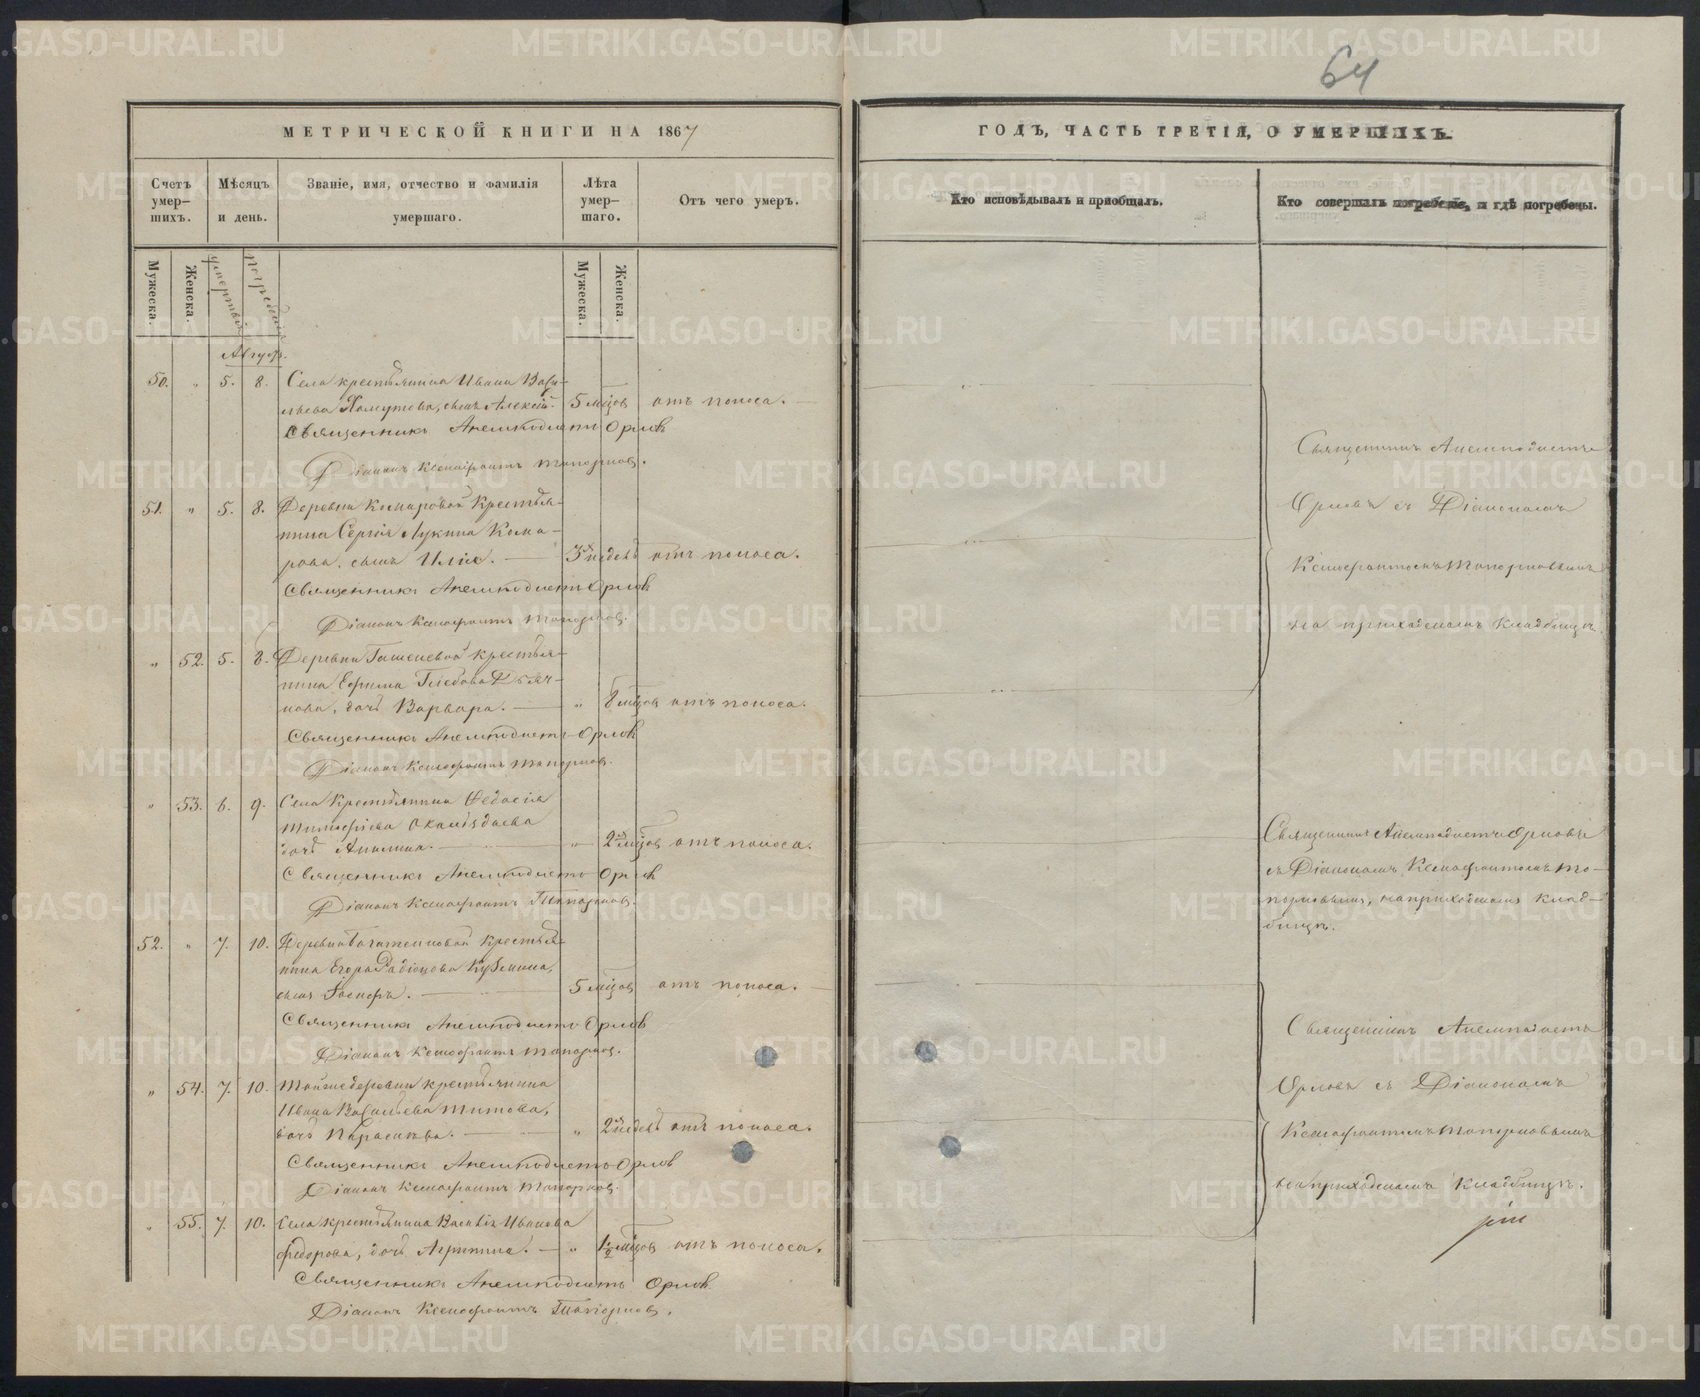 64
МЕТРИЧЕСКОЙ КНИГИ НА 1867
ГОДЪ, ЧАСТЬ ТРЕТІЯ, О УМЕРШИХЪ.
Счетъ умер-шихъ.
Мѣсяцъ и день.
Званіе, имя, отчество и фамилія умершаго.
Лѣта умер-шаго.
Отъ чего умеръ.
Кто исповѣдывалъ и пріобщалъ.
Кто совершалъ погребеніе, и гдѣ погребены.
Мужеска.
Женска.
смерти
погребенія
Мужеска.
Женска.
Август.
50. " 5. 8. Села крестьянина Ивана Васи-
льева Хомутова, сынъ Алексѣй. 5 мѣсяц отъ поноса.
Священникъ Анемподистъ Орловъ
Діаконъ Ксенофонтъ Топорковъ.
51. " 5. 8. Деревни Комаровой крестья-
нина Сергія Лукина Кома-
рова, сынъ Илія. 3х недѣль отъ поноса.
Священникъ Анемподистъ Орловъ
Діаконъ Ксенофонтъ Топорковъ.
" 52. 5. 8. Деревни крестья-
нина Ефима Глебова Дьяч-
кова, дочь Варвара. " 8 мѣсяц отъ поноса.
Священникъ Анемподистъ Орловъ
Діаконъ Ксенофонтъ Топорковъ.
" 53. 6. 9. Села крестьянина Федосія
Тимофѣева
дочь Апилина. " 2х мѣсяц отъ поноса.
Священникъ Анемподистъ Орловъ
Діаконъ Ксенофонтъ Топорковъ.
52. " 7. 10. Деревни крестья-
нина Егора Радіонова Кузьмина,
сынъ Іосифъ. 5 мѣсяц отъ поноса.
Священникъ Анемподистъ Орловъ
Діаконъ Ксенофонтъ Топорковъ.
" 54. 7. 10. Той же деревни крестьянина
Ивана Васильева Титова,
дочь Параскева. " 2х недѣль отъ поноса.
Священникъ Анемподистъ Орловъ
Діаконъ Ксенофонтъ Топорковъ.
" 55. 7. 10. Села крестьянина Василія Иванова
Федорова, дочь Агрипина. " 1½ мѣсяц отъ поноса.
Священникъ Анемподистъ Орловъ
Діаконъ Ксенофонтъ Топорковъ.
Священникъ Анемподистъ
Орловъ съ Діакономъ
Ксенофонтомъ Топорковымъ
на приходскомъ кладбищѣ.
Священникъ Анемподистъ Орловъ
съ Діакономъ Ксенофонтомъ То-
порковымъ, на приходскомъ клад-
бищѣ.
Священникъ Анемподистъ
Орловъ съ Діакономъ
Ксенофонтомъ Топорковымъ
на приходскомъ кладбищѣ.
METRIKI.GASO-URAL.RU